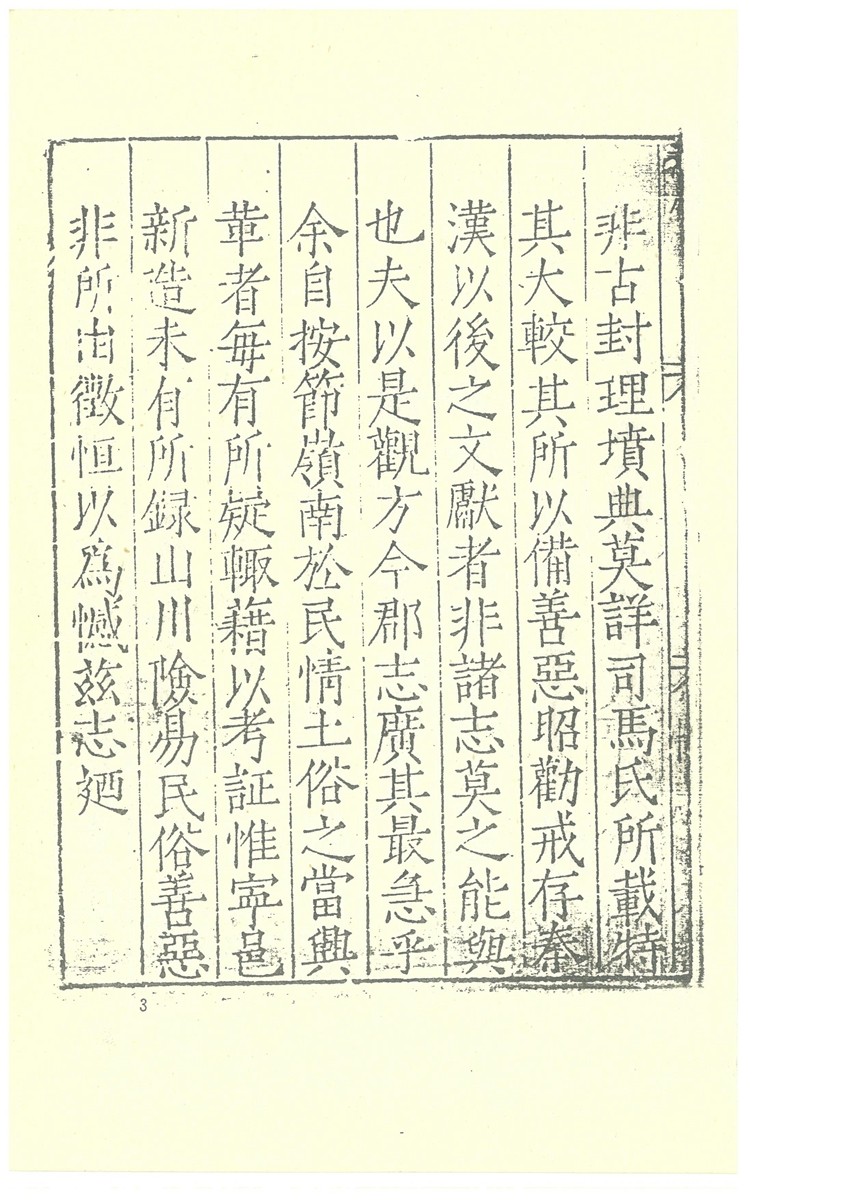 非古封理墳典莫詳司馬氏所載特
其大較其所以備善惡昭勸戒存秦
漢以後之文獻者非諸志莫之能與
也夫以是觀方今郡志廣其最急乎
余自按節嶺南於民情土俗之當興
革者每有所疑輙藉以考証惟寧邑
新造未有所録山川險易民俗善惡
非所由徵恒以為憾兹志廼
3